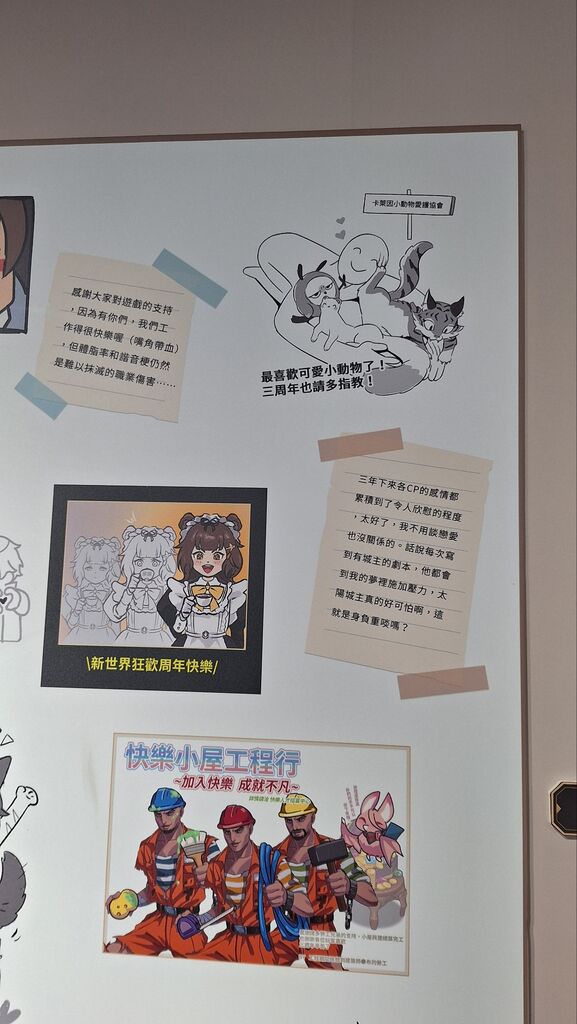 卡萊因小動物愛護協會
感謝大家對遊戲的支持
，因為有你們，我們工
作得很快樂喔（嘴角帶血）
，但體脂率和諧音梗仍然
是難以抹滅的職業傷害……
最喜歡可愛小動物了！
三周年也請多指教！
三年下來各CP的感情都
累積到了令人欣慰的程度
，太好了，我不用談戀愛
也沒關係的。話說每次寫
到有城主的劇本，他都會
到我的夢裡施加壓力，太
陽城主真的好可怕啊，這
就是身負重啖嗎？
\新世界狂歡周年快樂/
快樂小屋工程行
~加入快樂 成就不凡~